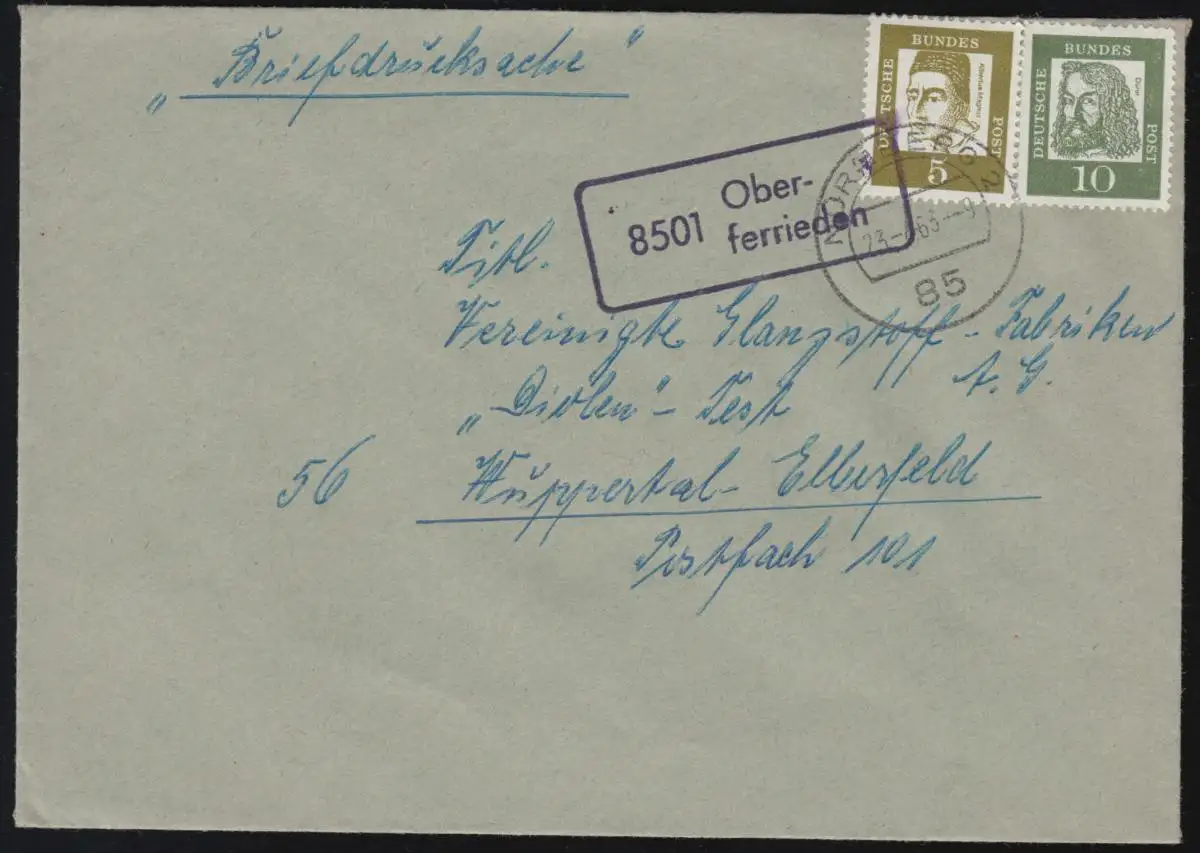 „Briefdrucksache“
BUNDES
DEUTSCHE
POST
Albertus Magnus
5
BUNDES
DEUTSCHE
POST
Dürer
10
8501 Ober-
ferrieden
85
Titl.
Vereinigte Glanzstoff-Fabriken
A.G.
„Diolen“-Test
56 Wuppertal-Elberfeld
Postfach 101